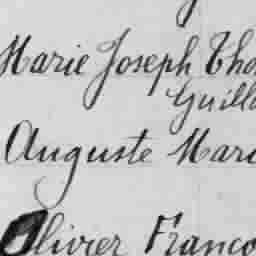 Marie Joseph Tho
Guill
Auguste Mari
Olivier Franço